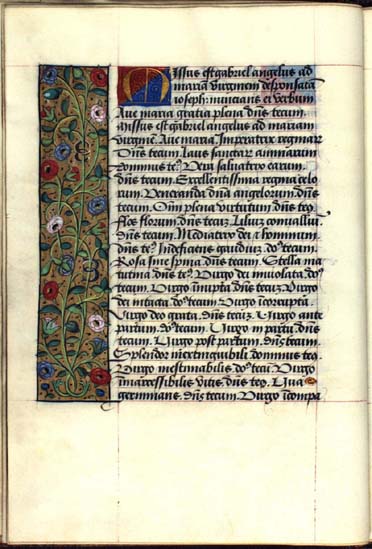 Missus est gabriel angelus ad
maria virginem desponsatā
ioseph: nuncians ei verbum
Aue maria gratia plena dns tecum.
missus est gabriel angelus ad mariam
virginē. Aue maria Imperatrix reginar
Dns tecum. Laus sanctar animarum
dominus te. Vera salutatrix earum.
dns tecum. Excellentissima regina celo
rum. Veneranda dna angelorum dns
tecum. Om plena virtutum dns teq
flos florum dns tecū. Liliū conualliū.
dns tecum. Mediatrix dei z hominum.
dns te. Indeficiens gaudiū. do tecum
Rosa sine spina dns tecum. Stella ma
tutina dns te. Virgo dei inuiolata do
tecum. Virgo inupta dns tecū. Virgo
dei intacta do tecum. Virgo icorrupta
Virgo deo grata. dns tecū. Virgo ante
partum do tecum. Virgo in partu dns
tecum. Virgo post partum. dns tecum.
Splendor inextinguibilis dominus teq.
Virgo inestimabilis do tecū. Virgo
inaccessibilis vitis. dns teq. Virga
germinans. dns tecum. Virgo icompa